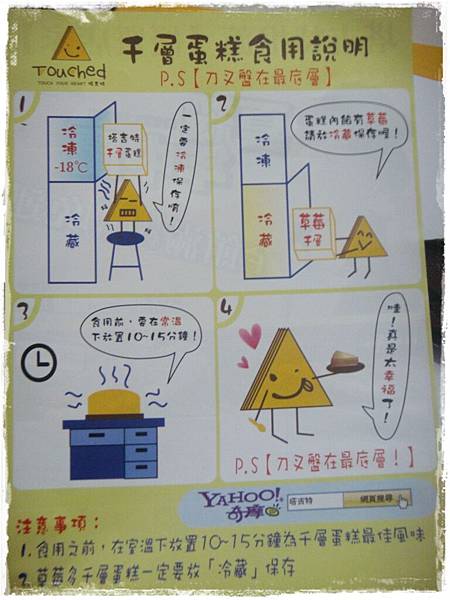 Touched
TOUCH YOUR HEART
千層蛋糕食用說明
P.S【刀叉盤在最底層】
1
冷凍
-18℃
冷藏
塔吉特
千層蛋糕
一定要冷凍保存唷！
2
冷凍
冷藏
草莓
千層
蛋糕內餡有草莓
請於冷藏保存喔！
3
食用前，要在常溫
下放置10~15分鐘！
4
哇！真是太
幸福了！
P.S【刀叉盤在最底層！】
YAHOO!
奇摩
塔吉特
網頁搜尋
注意事項：
1. 食用之前，在室溫下放置10~15分鐘為千層蛋糕最佳風味
2. 草莓多千層蛋糕一定要放「冷藏」保存